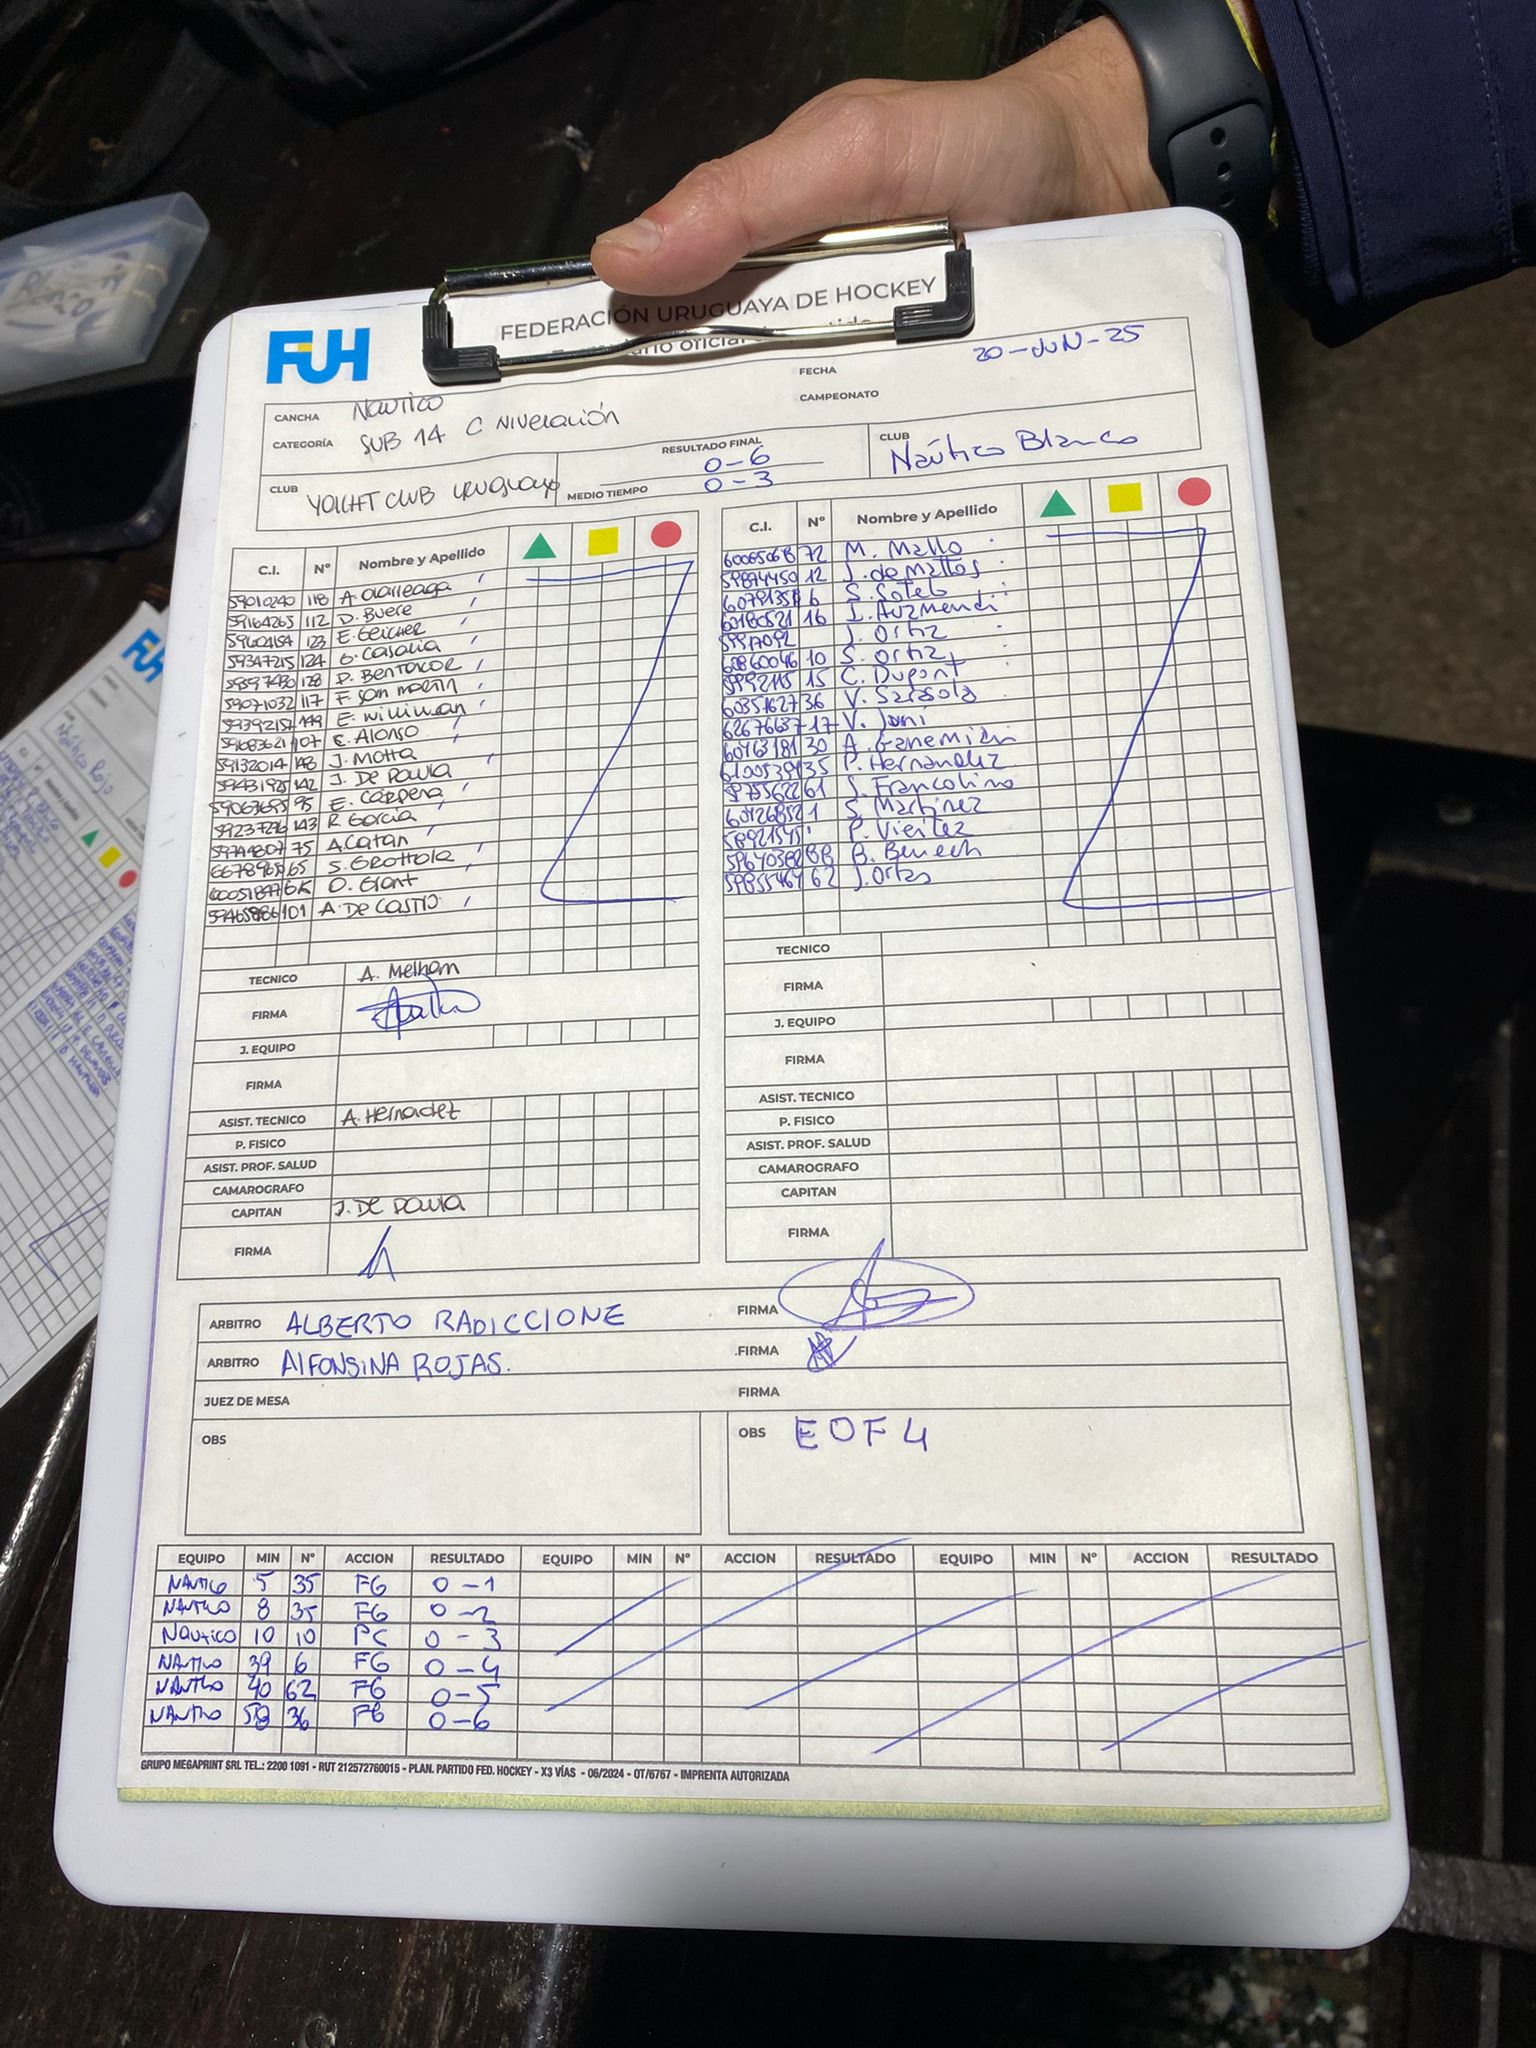 FUH
FEDERACIÓN URUGUAYA DE HOCKEY
FECHA 20-JUN-25
CANCHA NAUTICO
CAMPEONATO
CATEGORÍA SUB 14 C NIVELACIÓN
RESULTADO FINAL 0-6
CLUB YACHT CLUB URUGUAYO
MEDIO TIEMPO 0-3
CLUB Naútico Blanco
C.I. Nº Nombre y Apellido
59010240 118 A. Olarreaga
59164265 112 D. Buere
59604154 123 E. Geicher
59347215 124 G. Casalia
128 P. Bentancor
59071032 117 F. San Martin
59392157 149 E. Williman
59683621 107 E. Alonso
59132014 148 J. Motta
59431925 142 J. De Paula
95 E. Cárpena
59237296 143 R. Garcia
75 A. Catan
65 S. Grottola
O. Grant
101 A. De Castro
TECNICO A. Melham
FIRMA
J. EQUIPO
FIRMA
ASIST. TECNICO A. Hernadez
P. FISICO
ASIST. PROF. SALUD
CAMAROGRAFO
CAPITAN J. De Paula
FIRMA
C.I. Nº Nombre y Apellido
72 M. Mallo
59874450 12 J. de Mattos
6 S. Sotelo
60180521 16 I. Auzmendi
J. Ortiz
60860046 10 S. Ortiz
15 C. Dupont
60351627 36 V. Sarasola
62676637-17 V. Jani
60763181 30 A. Ganemian
35 P. Hernandez
61 J. Francolino
1 S. Martinez
P. Vieitez
88 B. Benech
59855464 62 J. Ortas
TECNICO
FIRMA
J. EQUIPO
FIRMA
ASIST. TECNICO
P. FISICO
ASIST. PROF. SALUD
CAMAROGRAFO
CAPITAN
FIRMA
ARBITRO ALBERTO RADICCIONE FIRMA
ARBITRO ALFONSINA ROJAS. FIRMA
JUEZ DE MESA FIRMA
OBS
OBS EOF 4
EQUIPO MIN Nº ACCION RESULTADO EQUIPO MIN Nº ACCION RESULTADO EQUIPO MIN Nº ACCION RESULTADO
NAUTICO 5 35 FG 0-1
NAUTICO 8 35 FG 0-2
Nautico 10 10 PC 0-3
NAUTICO 39 6 FG 0-4
NAUTICO 40 62 FG 0-5
NAUTICO 58 36 FG 0-6
GRUPO MEGAPRINT SRL TEL.: 2200 1091 - RUT 212572760015 - PLAN. PARTIDO FED. HOCKEY - X3 VÍAS - 06/2024 - OT/6767 - IMPRENTA AUTORIZADA
Blanco
FUH
Náutico Rojo